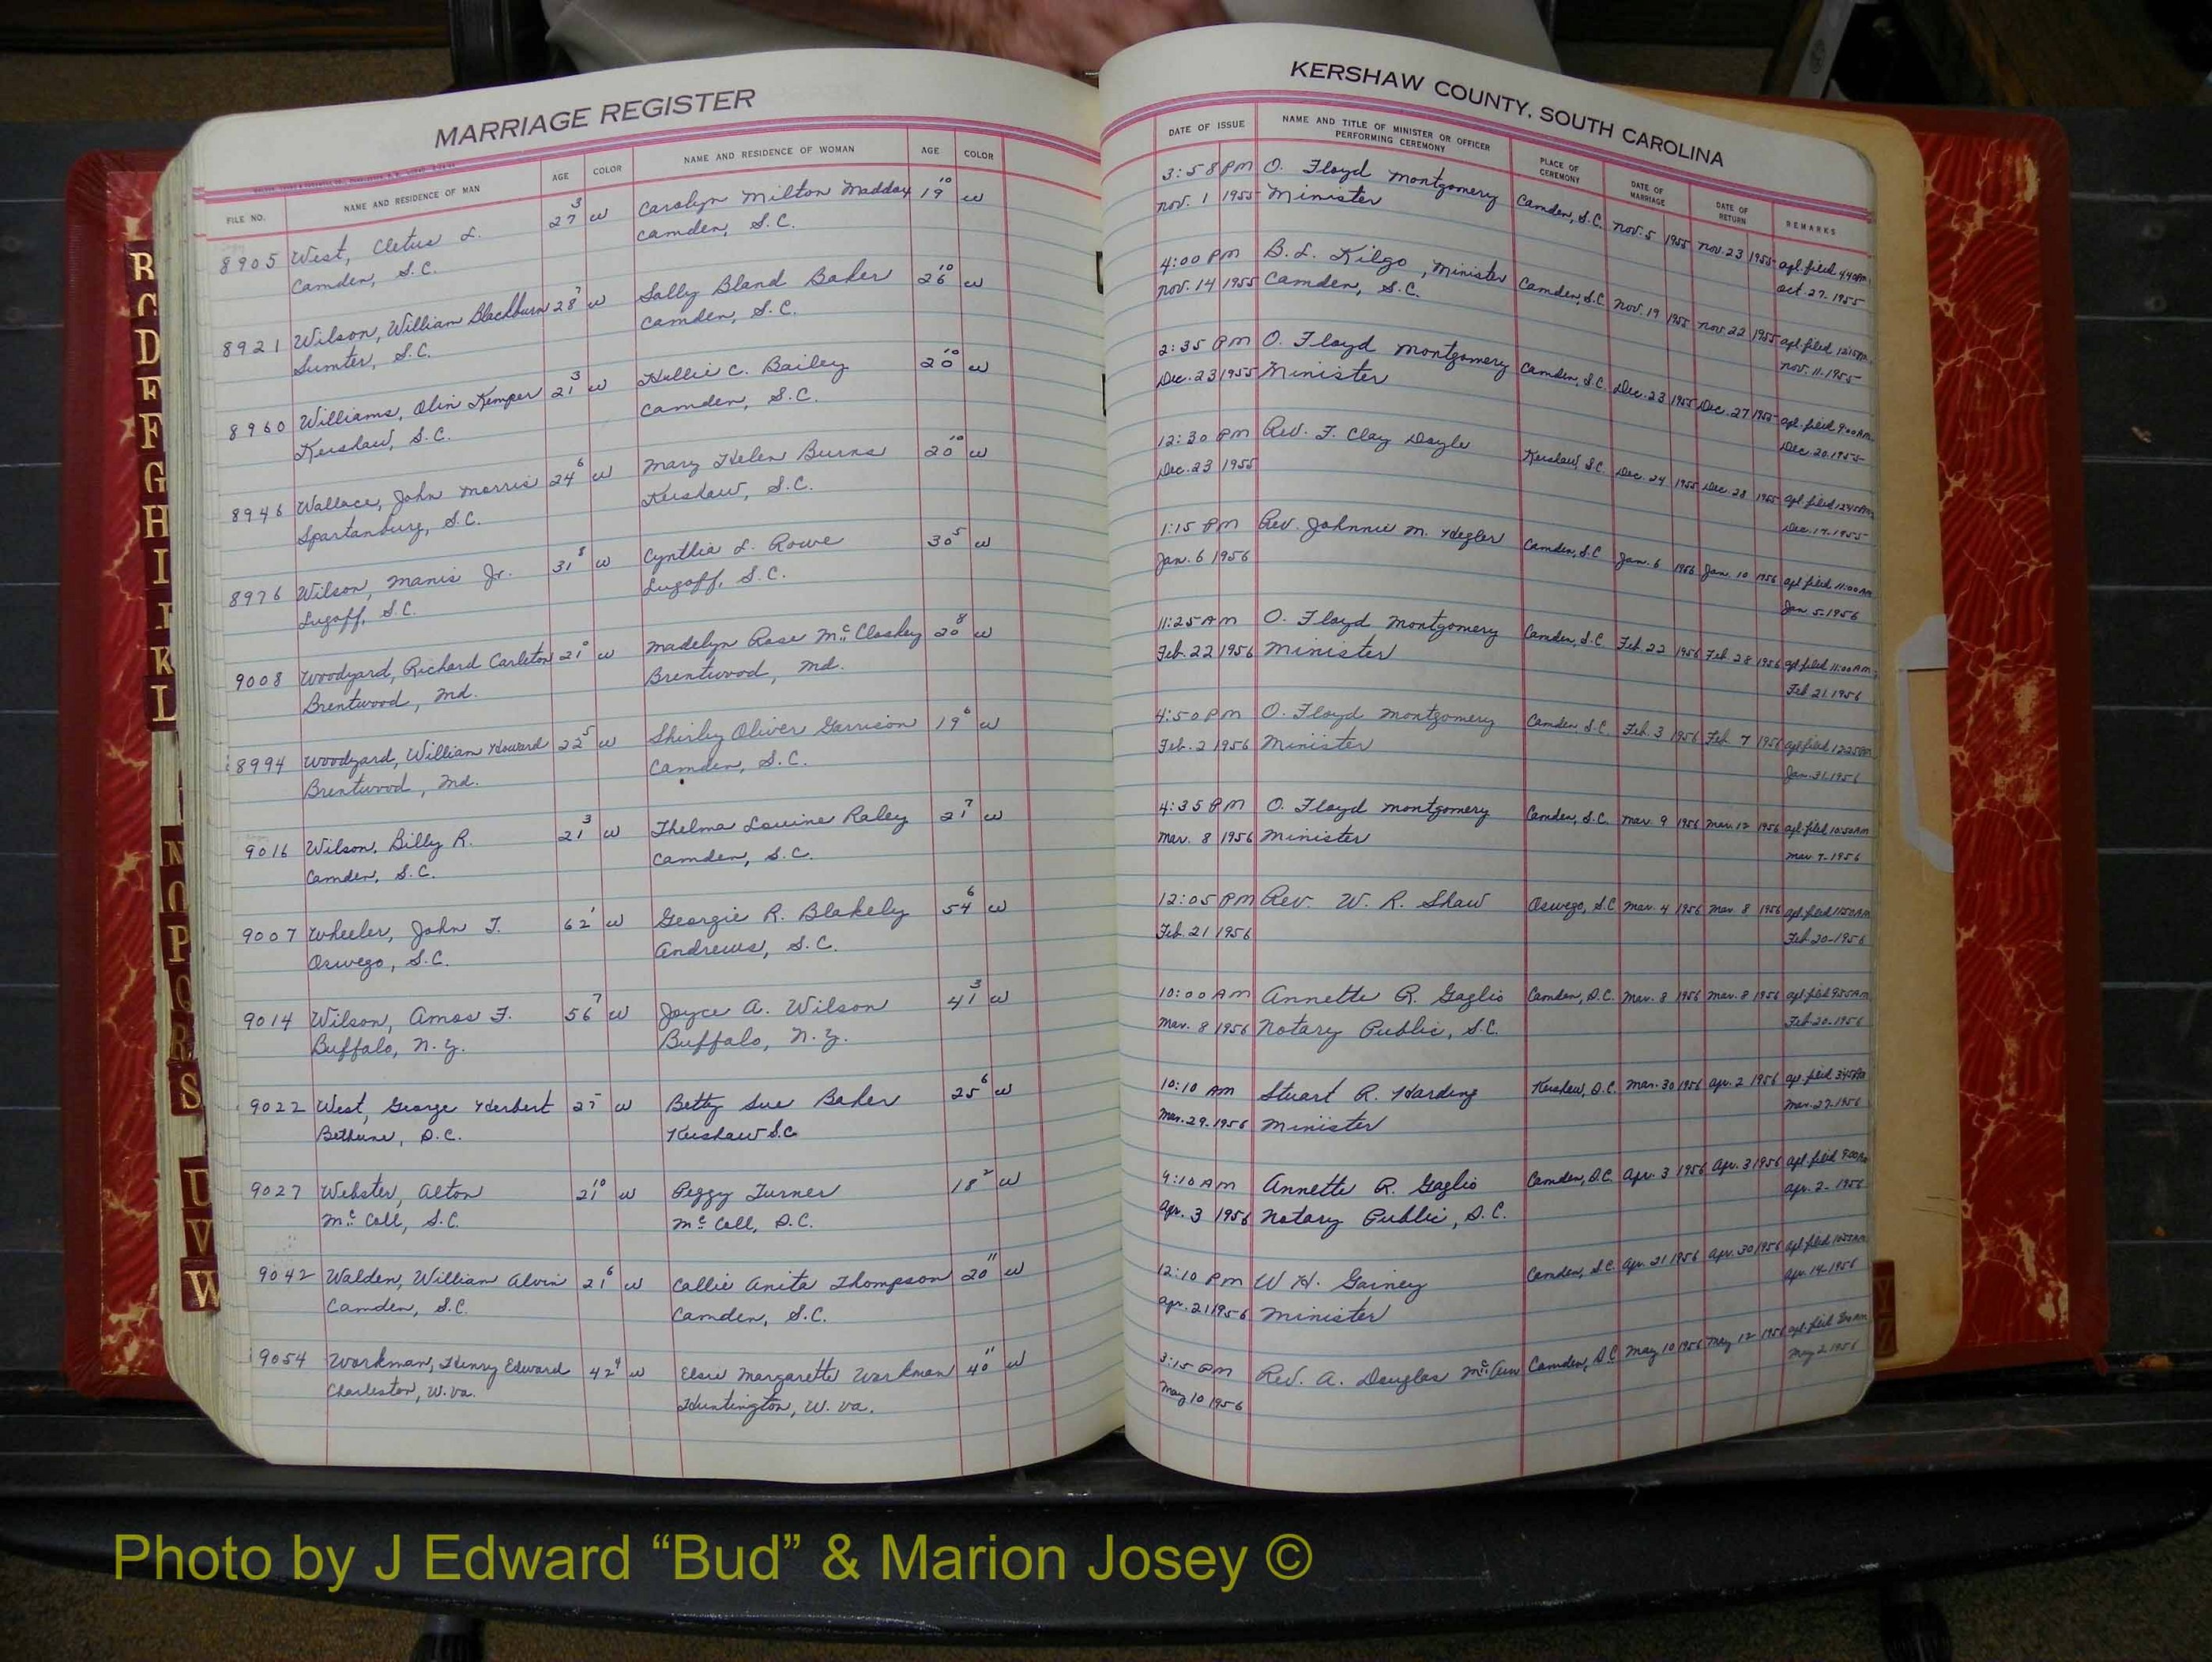 MARRIAGE REGISTER
FILE NO. NAME AND RESIDENCE OF MAN AGE COLOR NAME AND RESIDENCE OF WOMAN AGE COLOR
8905 West, Cletus L. 27 3 w Carolyn Milton Maddox 19 10 w
Camden, S.C. Camden, S.C.
8921 Wilson, William Blackburn 28 7 w Sally Bland Baker 26 10 w
Sumter, S.C. Camden, S.C.
8960 Williams, Olin Kemper 21 3 w Hallie C. Bailey 20 10 w
Kershaw, S.C. Camden, S.C.
8946 Wallace, John Morris 24 6 w Mary Helen Burns 20 10 w
Spartanburg, S.C. Kershaw, S.C.
8976 Wilson, Manis Jr. 31 8 w Cynthia L. Rowe 30 5 w
Lugoff, S.C. Lugoff, S.C.
9008 Woodyard, Richard Carleton 21 0 w Madelyn Rose McCloskey 20 8 w
Brentwood, Md. Brentwood, Md.
8994 Woodyard, William Howard 22 5 w Shirley Oliver Garrison 19 6 w
Brentwood, Md. Camden, S.C.
9016 Wilson, Billy R. 21 3 w Thelma Louine Raley 21 7 w
Camden, S.C. Camden, S.C.
9007 Wheeler, John T. 62 1 w Georgie R. Blakely 54 6 w
Oswego, S.C. Andrews, S.C.
9014 Wilson, Amos F. 56 7 w Joyce A. Wilson 41 3 w
Buffalo, N.Y. Buffalo, N.Y.
9022 West, George Herbert w Betty Sue Baker 25 6 w
Bethune, S.C. Kershaw S.C.
9027 Webster, Alton 21 10 w Peggy Turner 18 2 w
McColl, S.C. McColl, S.C.
9042 Walden, William Alvin 21 6 w Callie Anita Thompson 20 11 w
Camden, S.C. Camden, S.C.
9054 Workman, Henry Edward 42 4 w Elsie Margarette Workman 40 11 w
Charleston, W.Va. Huntington, W.Va.
KERSHAW COUNTY, SOUTH CAROLINA
DATE OF ISSUE NAME AND TITLE OF MINISTER OR OFFICER PERFORMING CEREMONY PLACE OF CEREMONY DATE OF MARRIAGE DATE OF RETURN REMARKS
3:58 PM O. Floyd Montgomery Camden, S.C. Nov. 5 1955 Nov. 23 1955 apl. filed 4:40 PM
Nov. 1 1955 Minister Oct. 27-1955
4:00 PM B. L. Kilgo, Minister Camden, S.C. Nov. 19 1955 Nov. 22 1955 apl. filed 12:15 PM
Nov. 14 1955 Camden, S.C. Nov. 11-1955
2:35 PM O. Floyd Montgomery Camden, S.C. Dec. 23 1955 Dec. 27 1955 apl. filed 9:00 AM
Dec. 23 1955 Minister Dec. 20-1955
12:30 PM Rev. F. Clay Doyle Kershaw, S.C. Dec. 24 1955 Dec. 28 1955 apl. filed
Dec. 23 1955 Dec. 17-1955
1:15 PM Rev. Johnnie M. Hegler Camden, S.C. Jan. 6 1956 Jan. 10 1956 apl. filed 11:00 AM
Jan. 6 1956 Jan 5-1956
11:25 AM O. Floyd Montgomery Camden, S.C. Feb. 22 1956 Feb. 28 1956 apl. filed 11:00 AM
Feb. 22 1956 Minister Feb 21, 1956
4:50 PM O. Floyd Montgomery Camden, S.C. Feb. 3 1956 Feb. 7 1956 apl. filed
Feb. 2 1956 Minister Jan. 31-1956
4:35 PM O. Floyd Montgomery Camden, S.C. Mar. 9 1956 Mar. 12 1956 apl. filed 10:50 AM
Mar. 8 1956 Minister Mar. 7-1956
12:05 PM Rev. W. R. Shaw Oswego, S.C. Mar. 4 1956 Mar. 8 1956 apl. filed 11:50 AM
Feb. 21 1956 Feb. 20-1956
10:00 AM Annette R. Gaglio Camden, S.C. Mar. 8 1956 Mar. 8 1956 apl. filed 9:55 AM
Mar. 8 1956 Notary Public, S.C. Feb. 20-1956
10:10 AM Stuart R. Harding Kershaw, S.C. Mar. 30 1956 Apr. 2 1956 ap. filed
Mar. 29-1956 Minister Mar. 27-1956
9:10 AM Annette R. Gaglio Camden, S.C. Apr. 3 1956 Apr. 3 1956 apl. filed 9:00 AM
Apr. 3 1956 Notary Public, S.C. Apr. 2-1956
12:10 PM W H. Gainey Camden, S.C. Apr. 21 1956 Apr. 30 1956 apl. filed
Apr. 21 1956 Minister Apr. 14-1956
3:15 PM Rev. A. Douglas Camden, S.C. May 10 1956 May 12 1956 apl. filed
May 10 1956 May 2 1956
D
F
G
H
I
K
L
N
O
P
Q
R
S
U
V
W
Y
Z
Photo by J Edward “Bud” & Marion Josey ©